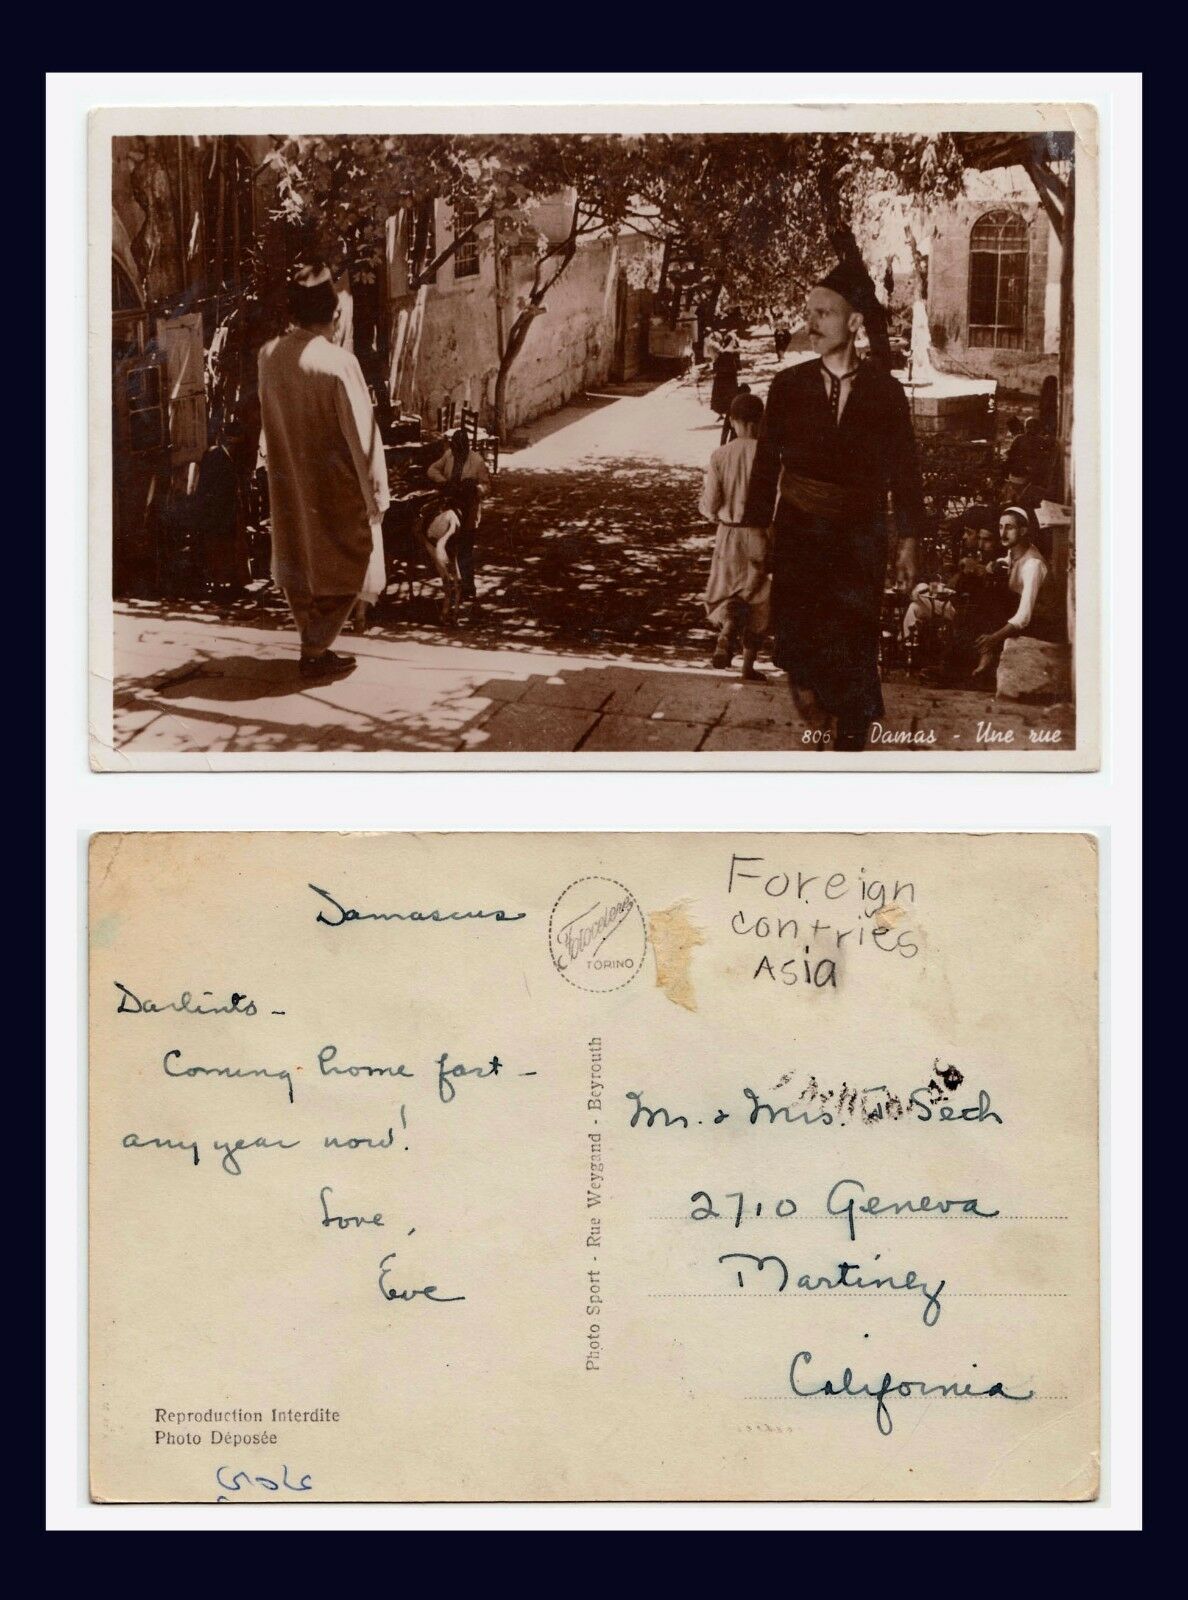 806 - Damas - Une rue
Damascus
Darlints -
Coming home fast -
any year now!
Love,
Eve
Reproduction Interdite
Photo Déposée
Fotocelere
TORINO
Photo Sport - Rue Weygand - Beyrouth
Foreign
contries
Asia
Mr. & Mrs. Sech
2710 Geneva
Martinez
California